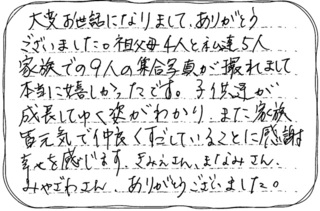 大変お世話になりまして、ありがとう
ございました。祖父母4人と私達5人
家族での9人の集合写真が撮れまして
本当に嬉しかったです。子供達が
成長してゆく姿がわかり、また家族
皆元気で仲良くすごしていることに感謝
幸せを感じます。きみえさん、まなみさん、
みやざわさん、ありがとうございました。